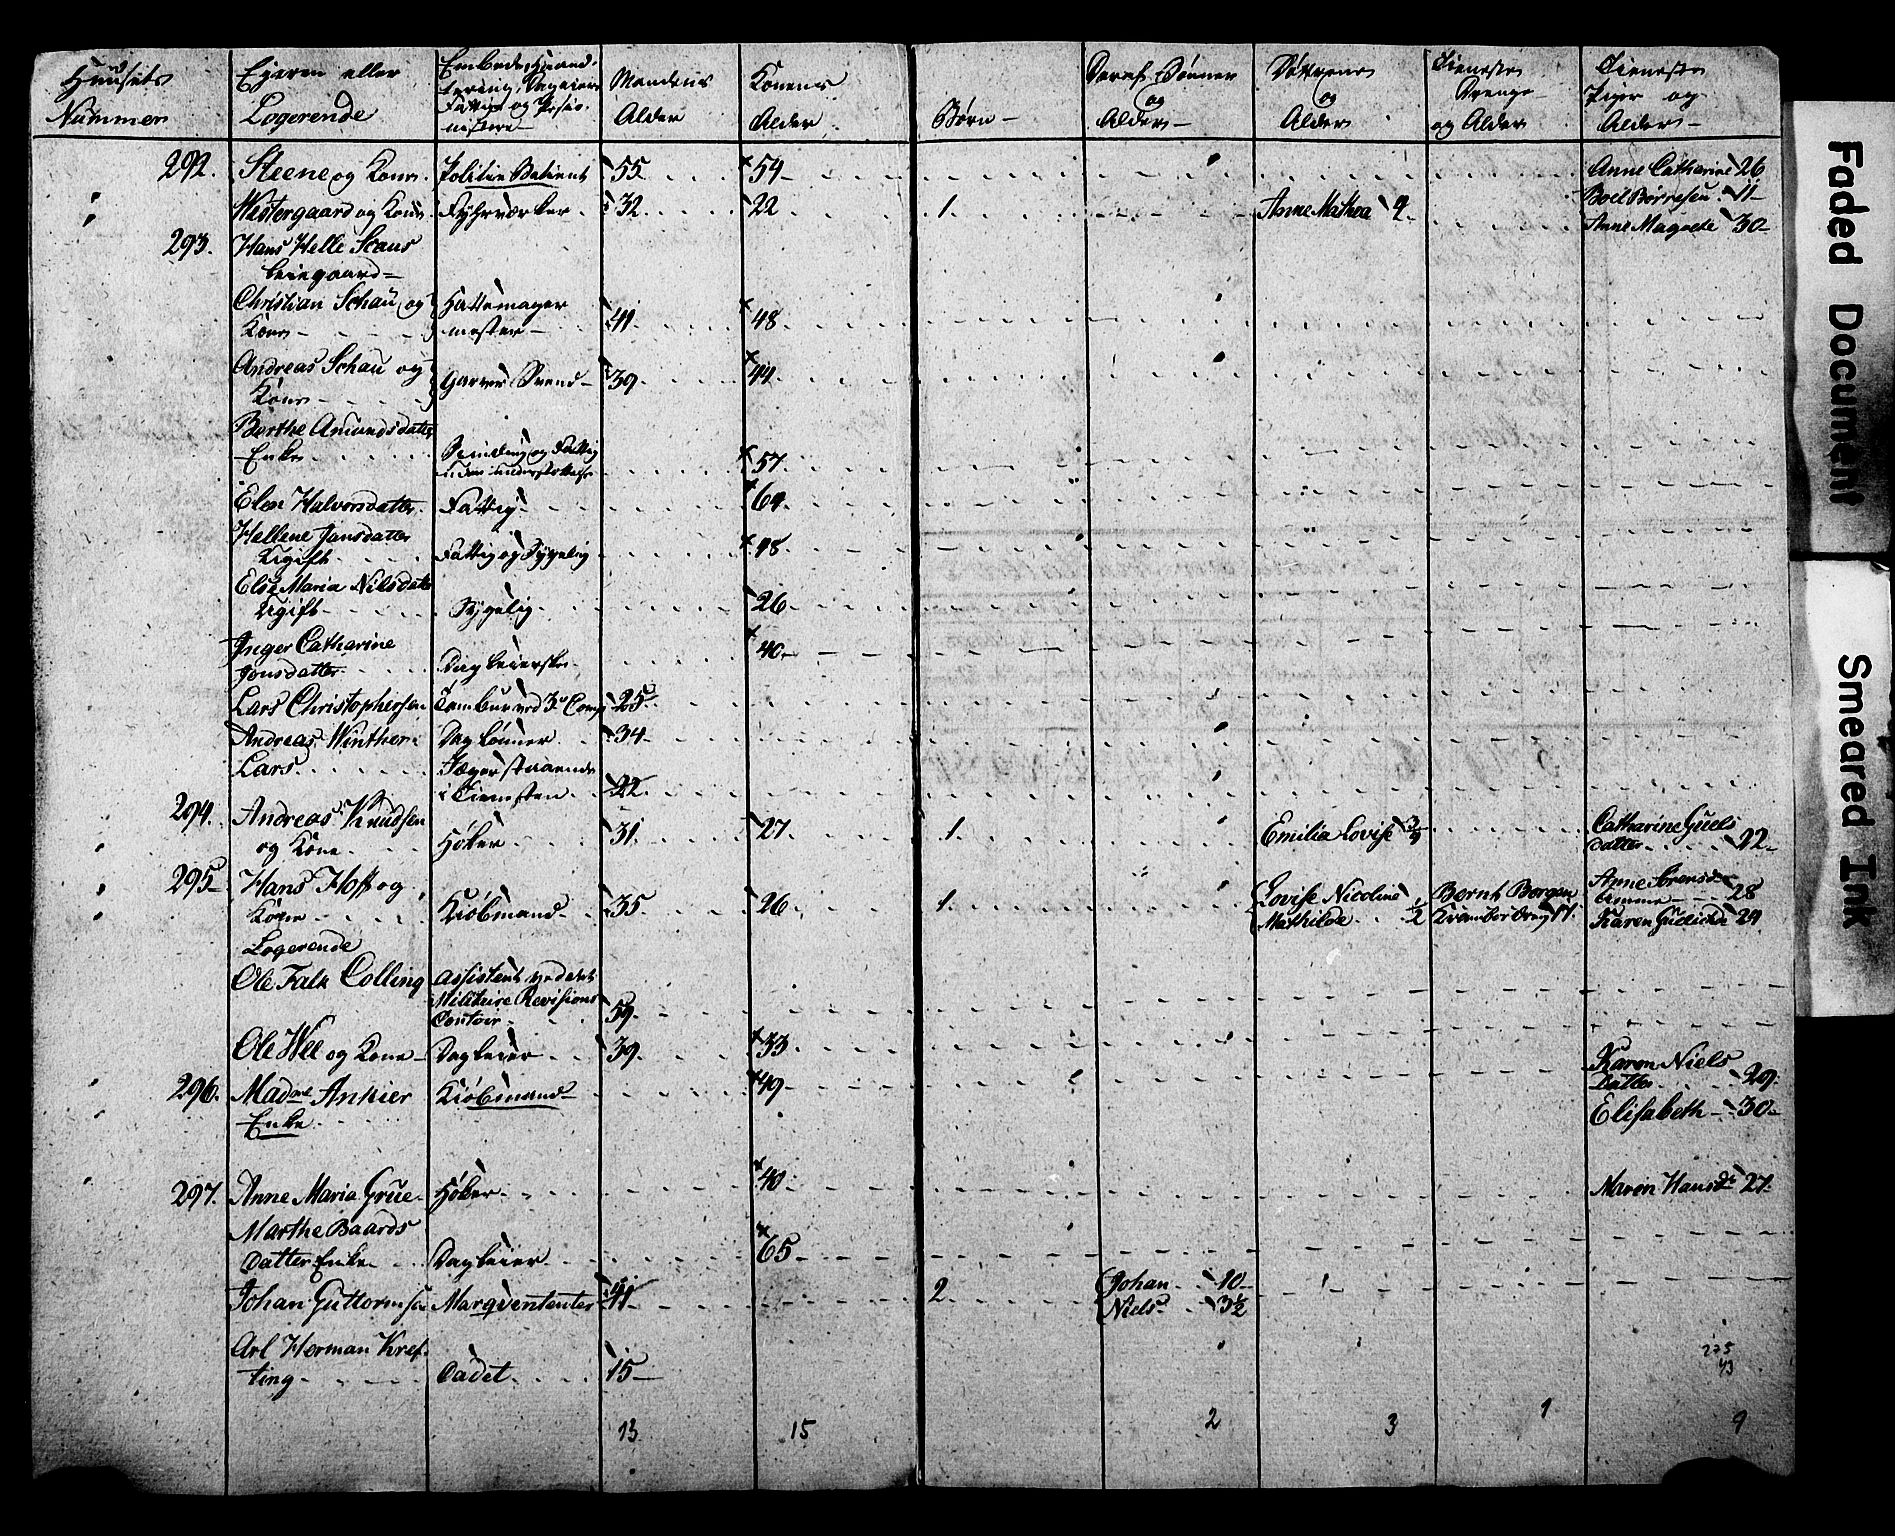 Huusets
Nummer
Ejeren eller
Logerende
Embede, Haand-
tering, Dagleiere
Fattige og Pensio-
nister
Mandens
Alder
Konens
Alder
Børn
Deraf Sønner
og
Alder
Døttrene
og
Alder
Tieneste
Drenge
og Alder
Tieneste
Piger og
Alder
292. Steene og Kone. Politie Betient 55 54 Anne Catharine 26
Westergaard og Kone Fyhrværker 32. 22 1. Anne Mathea 4 Boel Børresen 11
Anne Magrete 30
293. Hans Helle
Christian Schau og Hattemager
Kone mester 41 48
Andreas Schau og
Kone Garver Svend 39 44
Berthe Amundsdatter
Enke og Fattig
uden understøttelse 57
Elen Halvorsdatter Fattig 64
Hellene Jansdatter
Ugift Fattig og Sygelig 48
Else Maria Nilsdatter
Ugift Sygelig 26
Inger Catharine
Jonsdatter Dagleierske 40
Lars Christophersen Tambur ved 3 Comp 25
Andreas Winther Daglønner 34
Lars Jæger staaende
i Tienesten 22
294. Andreas Knudsen
og Kone Høker 31 27 1. Emilia Lovise 3/4 Catharine Guels
datter 22
295 Hans Hoff og
Kone Kiøbmand 35 26 1. Lovise Nicoline
Mathilde 1/2 Bernt Borgen
Krambodreng 17. Anne Sørensd
Amme 28
Karen Gulichs 24
Logerende
Ole Falk Colling Assistent ved det
Militaire Revisions
Contoir 59
Ole Wee og Kone Dagleier 39 33
296. Madme Ankier Kiøbmand 49 Karen Niels
Datter 29
Enke Elisabeth 30
297. Anne Maria Grue Høker 40 Maren Hansdr 27
Marthe Baards
Datter Enke Dagleier 65
Johan Guttormsen Marqvententer 41 2 Johan 10
Niels 3½
Arl Herman Kref-
ting Cadet 15
275
43
13 15 2 3 1 9
Faded Document
Smeared Ink